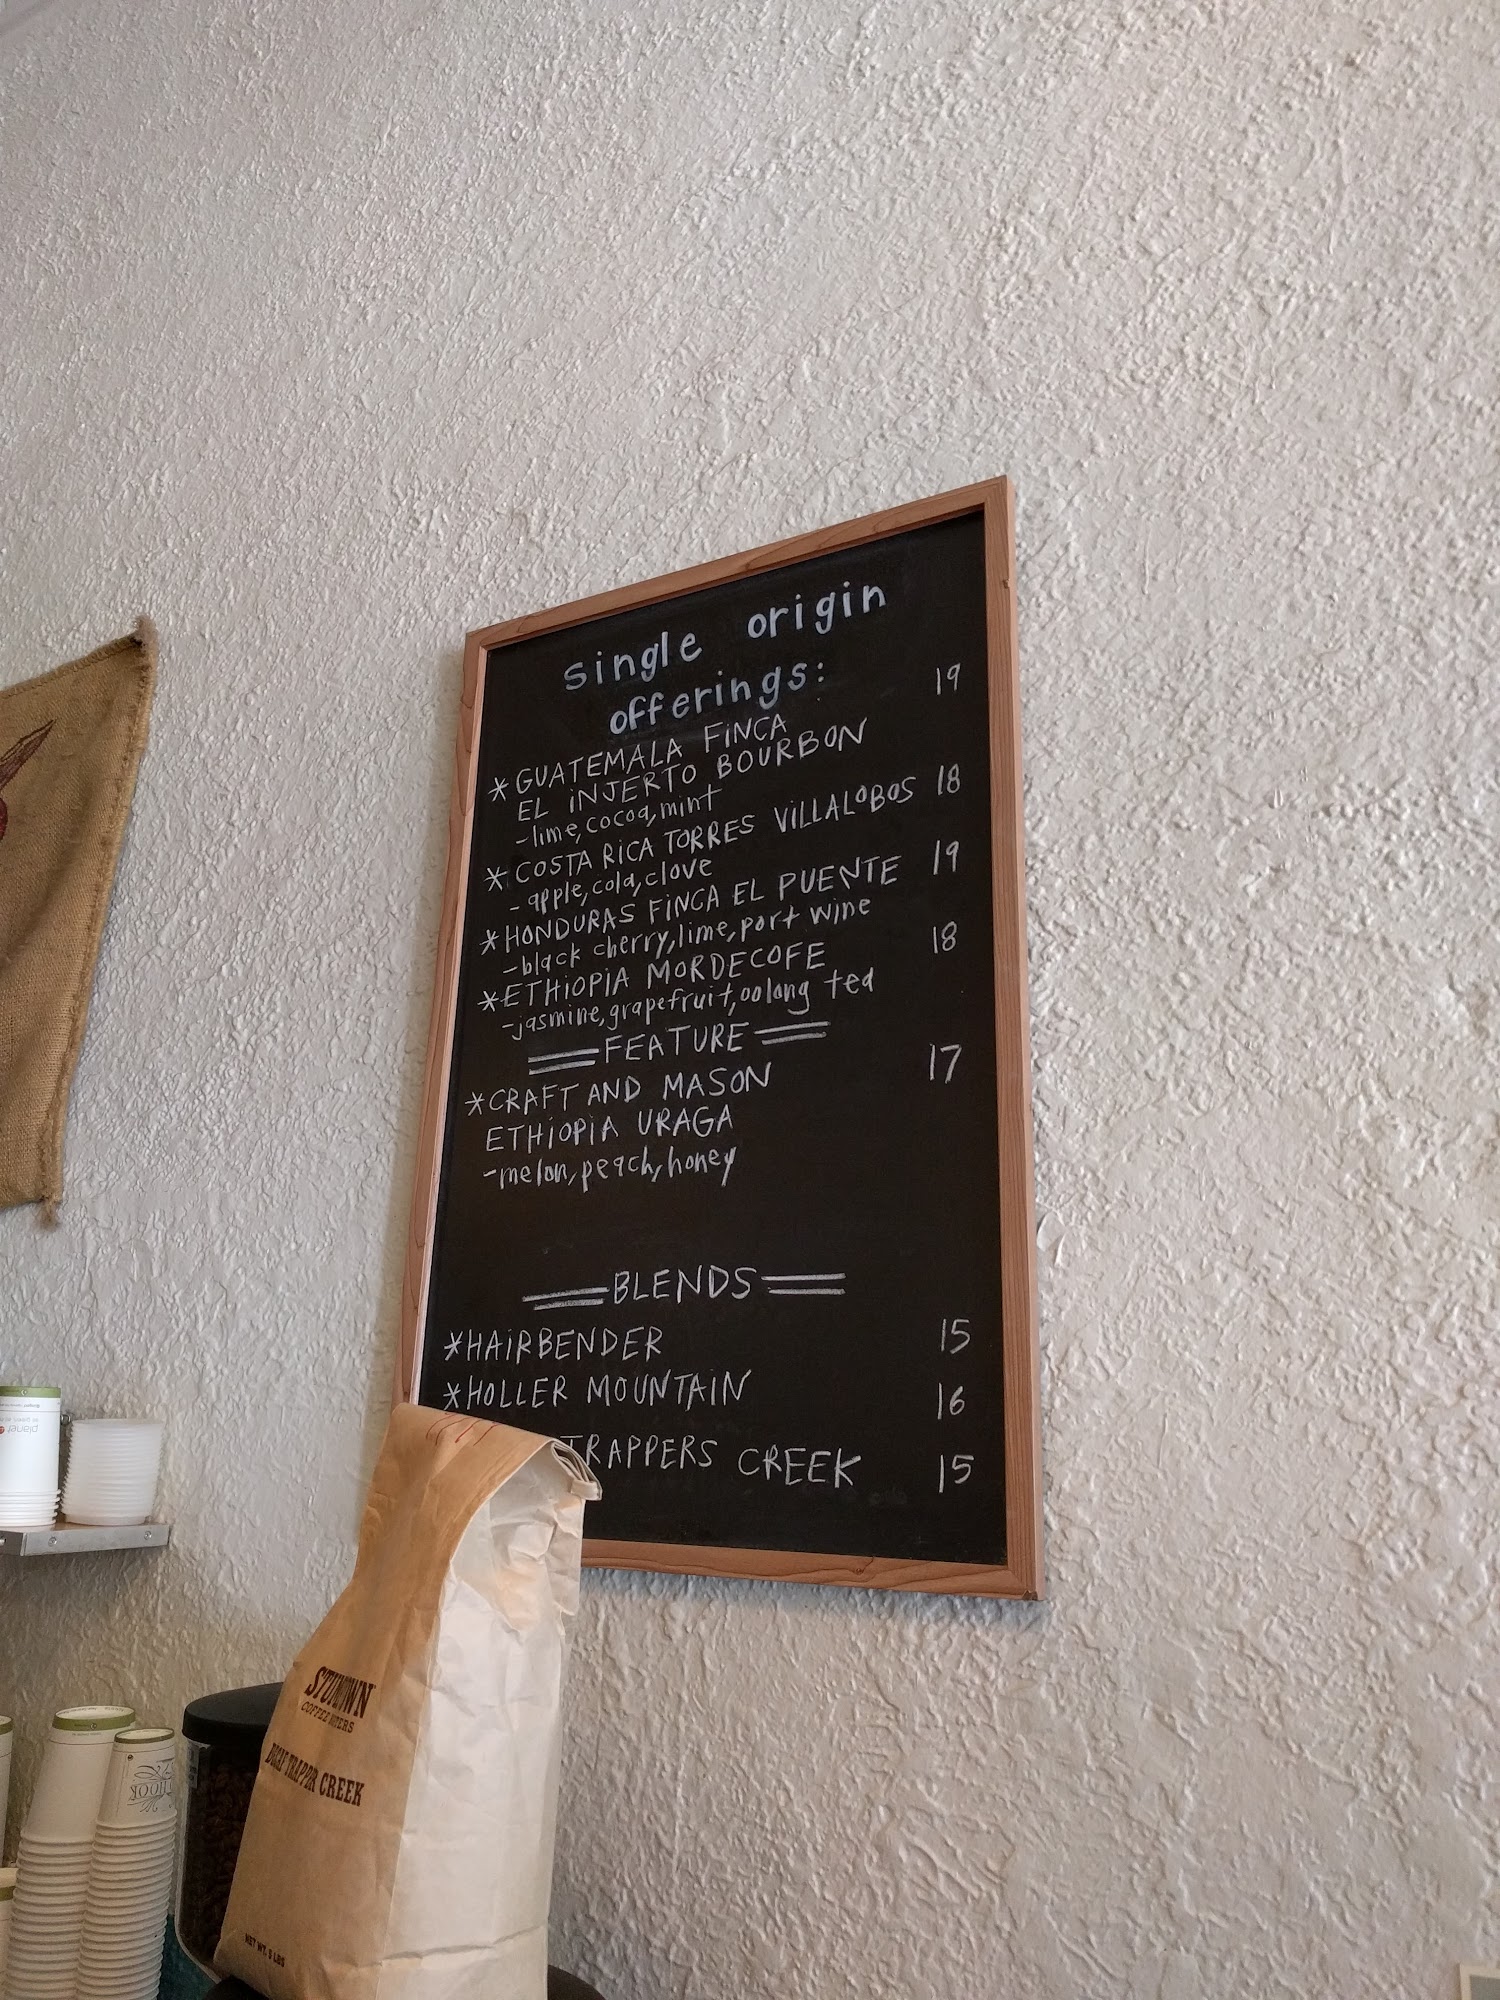 single origin
offerings:
*GUATEMALA FINCA 19
EL INJERTO BOURBON
-lime, cocoa, mint
*COSTA RICA TORRES VILLALOBOS 18
-apple, cola, clove
*HONDURAS FINCA EL PUENTE 19
-black cherry, lime, port wine
*ETHIOPIA MORDECOFE 18
-jasmine, grapefruit, oolong tea
FEATURE
*CRAFT AND MASON 17
ETHIOPIA URAGA
-melon, peach, honey
BLENDS
*HAIRBENDER 15
*HOLLER MOUNTAIN 16
TRAPPERS CREEK 15
COFFEE
DECAF TRAPPR CREEK
NET WT. 5 LBS
planet